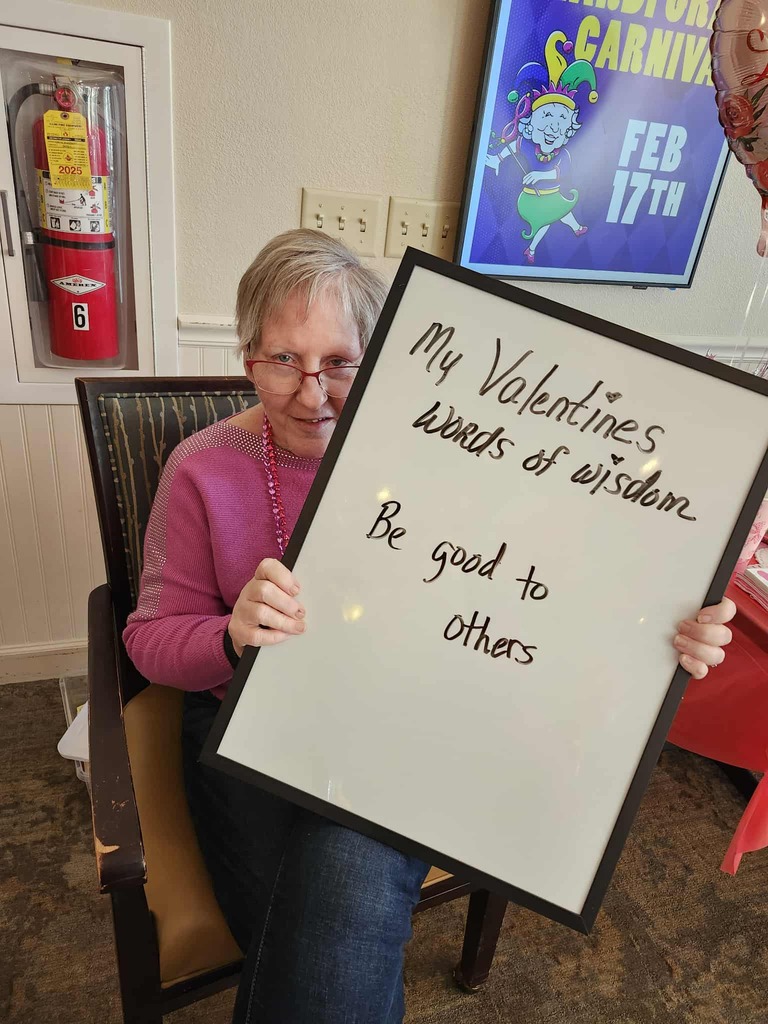 CARNIVA
FEB
17TH
2025
AMEREX
6
My Valentines
words of wisdom
Be good to
others